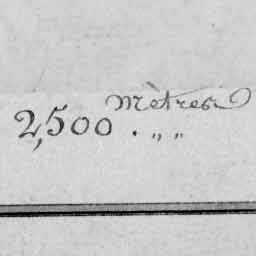 mètres
2,500 . „ „